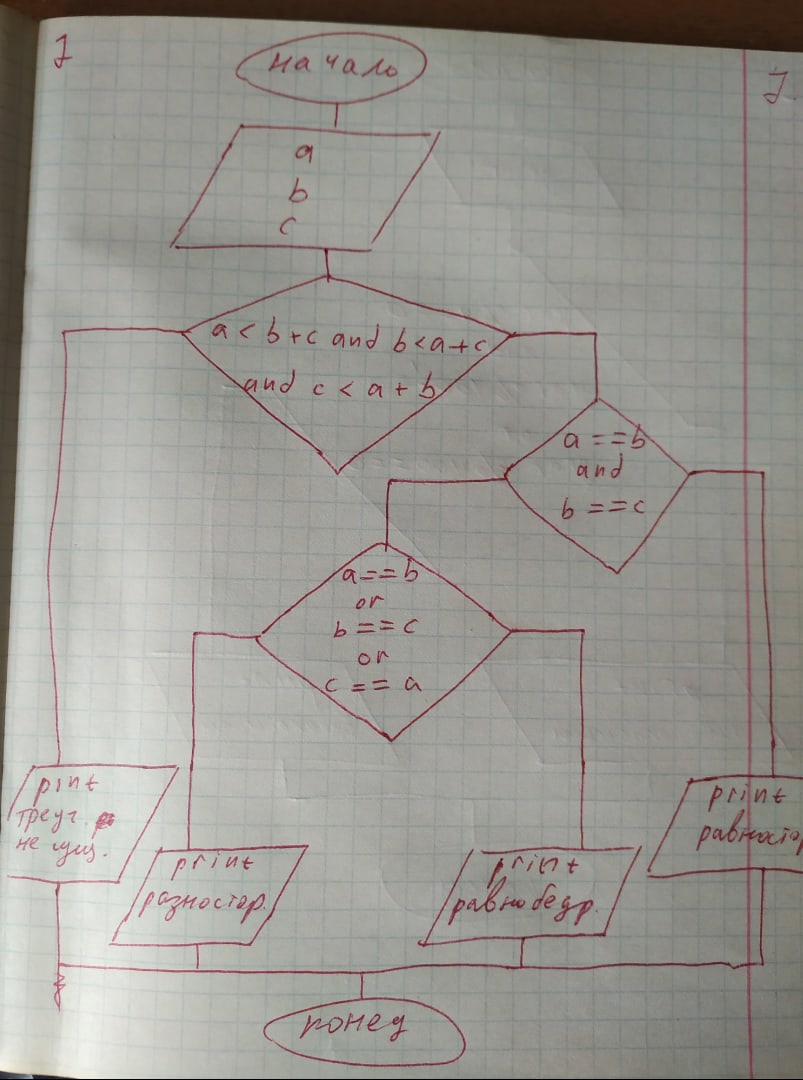 1
начало
a
b
c
a < b + c and b < a + c
and c < a + b
a == b
and
b == c
a == b
or
b == c
or
c == a
pint
треуг.
не сущ.
print
разностор.
print
равнобедр.
print
равностор
конец